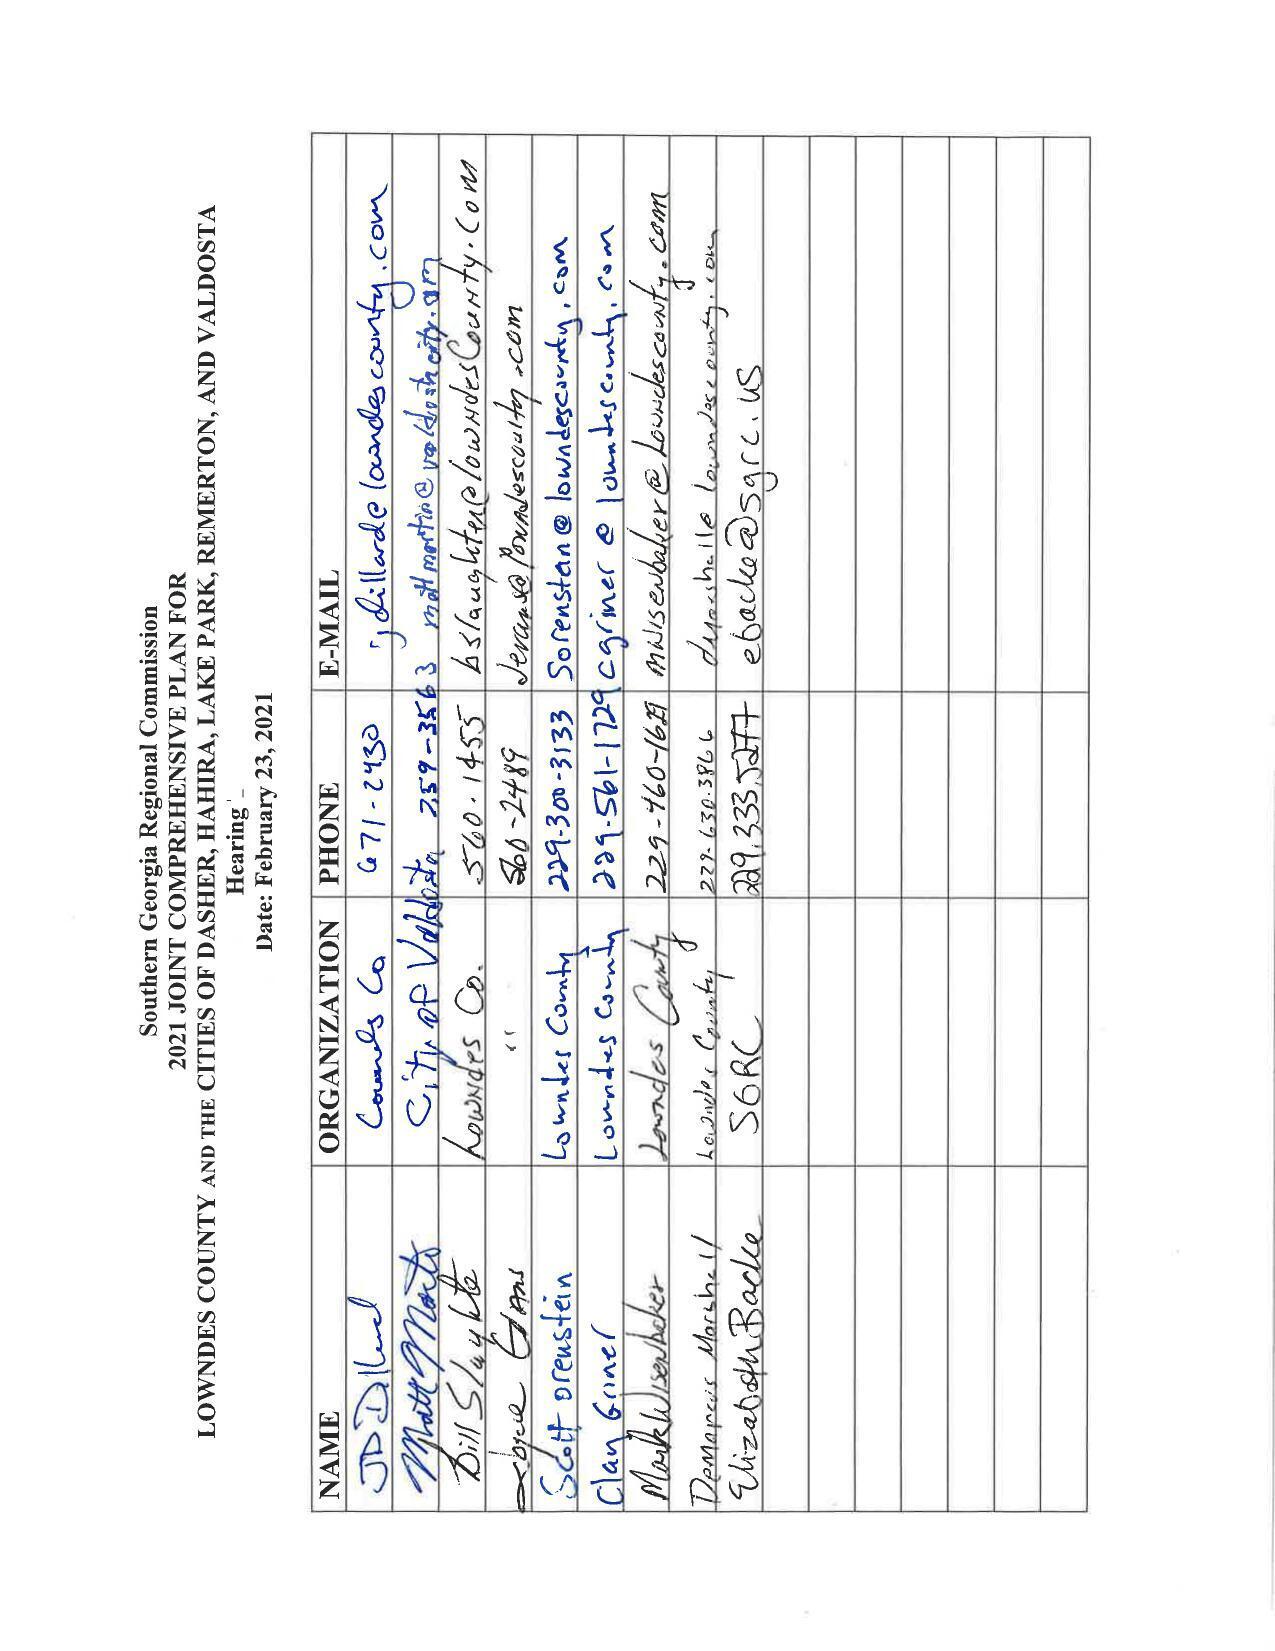 Southern Georgia Regional Commission
2021 JOINT COMPREHENSIVE PLAN FOR
LOWNDES COUNTY AND THE CITIES OF DASHER, HAHIRA, LAKE PARK, REMERTON, AND VALDOSTA
Hearing
Date: February 23, 2021
NAME ORGANIZATION PHONE E-MAIL
JD Dillard Lowndes Co 671-2430 jdillard@lowndescounty.com
Matt Martin City of Valdosta 259-3563 mattmartin@valdostacity.com
Bill Slaughter Lowndes Co. 560.1455 bslaughter@lowndesCounty.com
Joyce Evans " 560-2489 Jevans@lowndescounty.com
Scott Orenstein Lowndes County 229-300-3133 Sorenstein@lowndescounty.com
Clay Griner Lowndes County 229-561-1729 cgriner@lowndescounty.com
Mark Wisenbaker Lowndes County 229-460-1629 mwisenbaker@Lowndescounty.com
Demarcus Marshall Lowndes County 229-630-3866 dmarshall@lowndescounty.com
Elizabeth Backe SGRC 229.333.5277 ebacke@sgrc.us